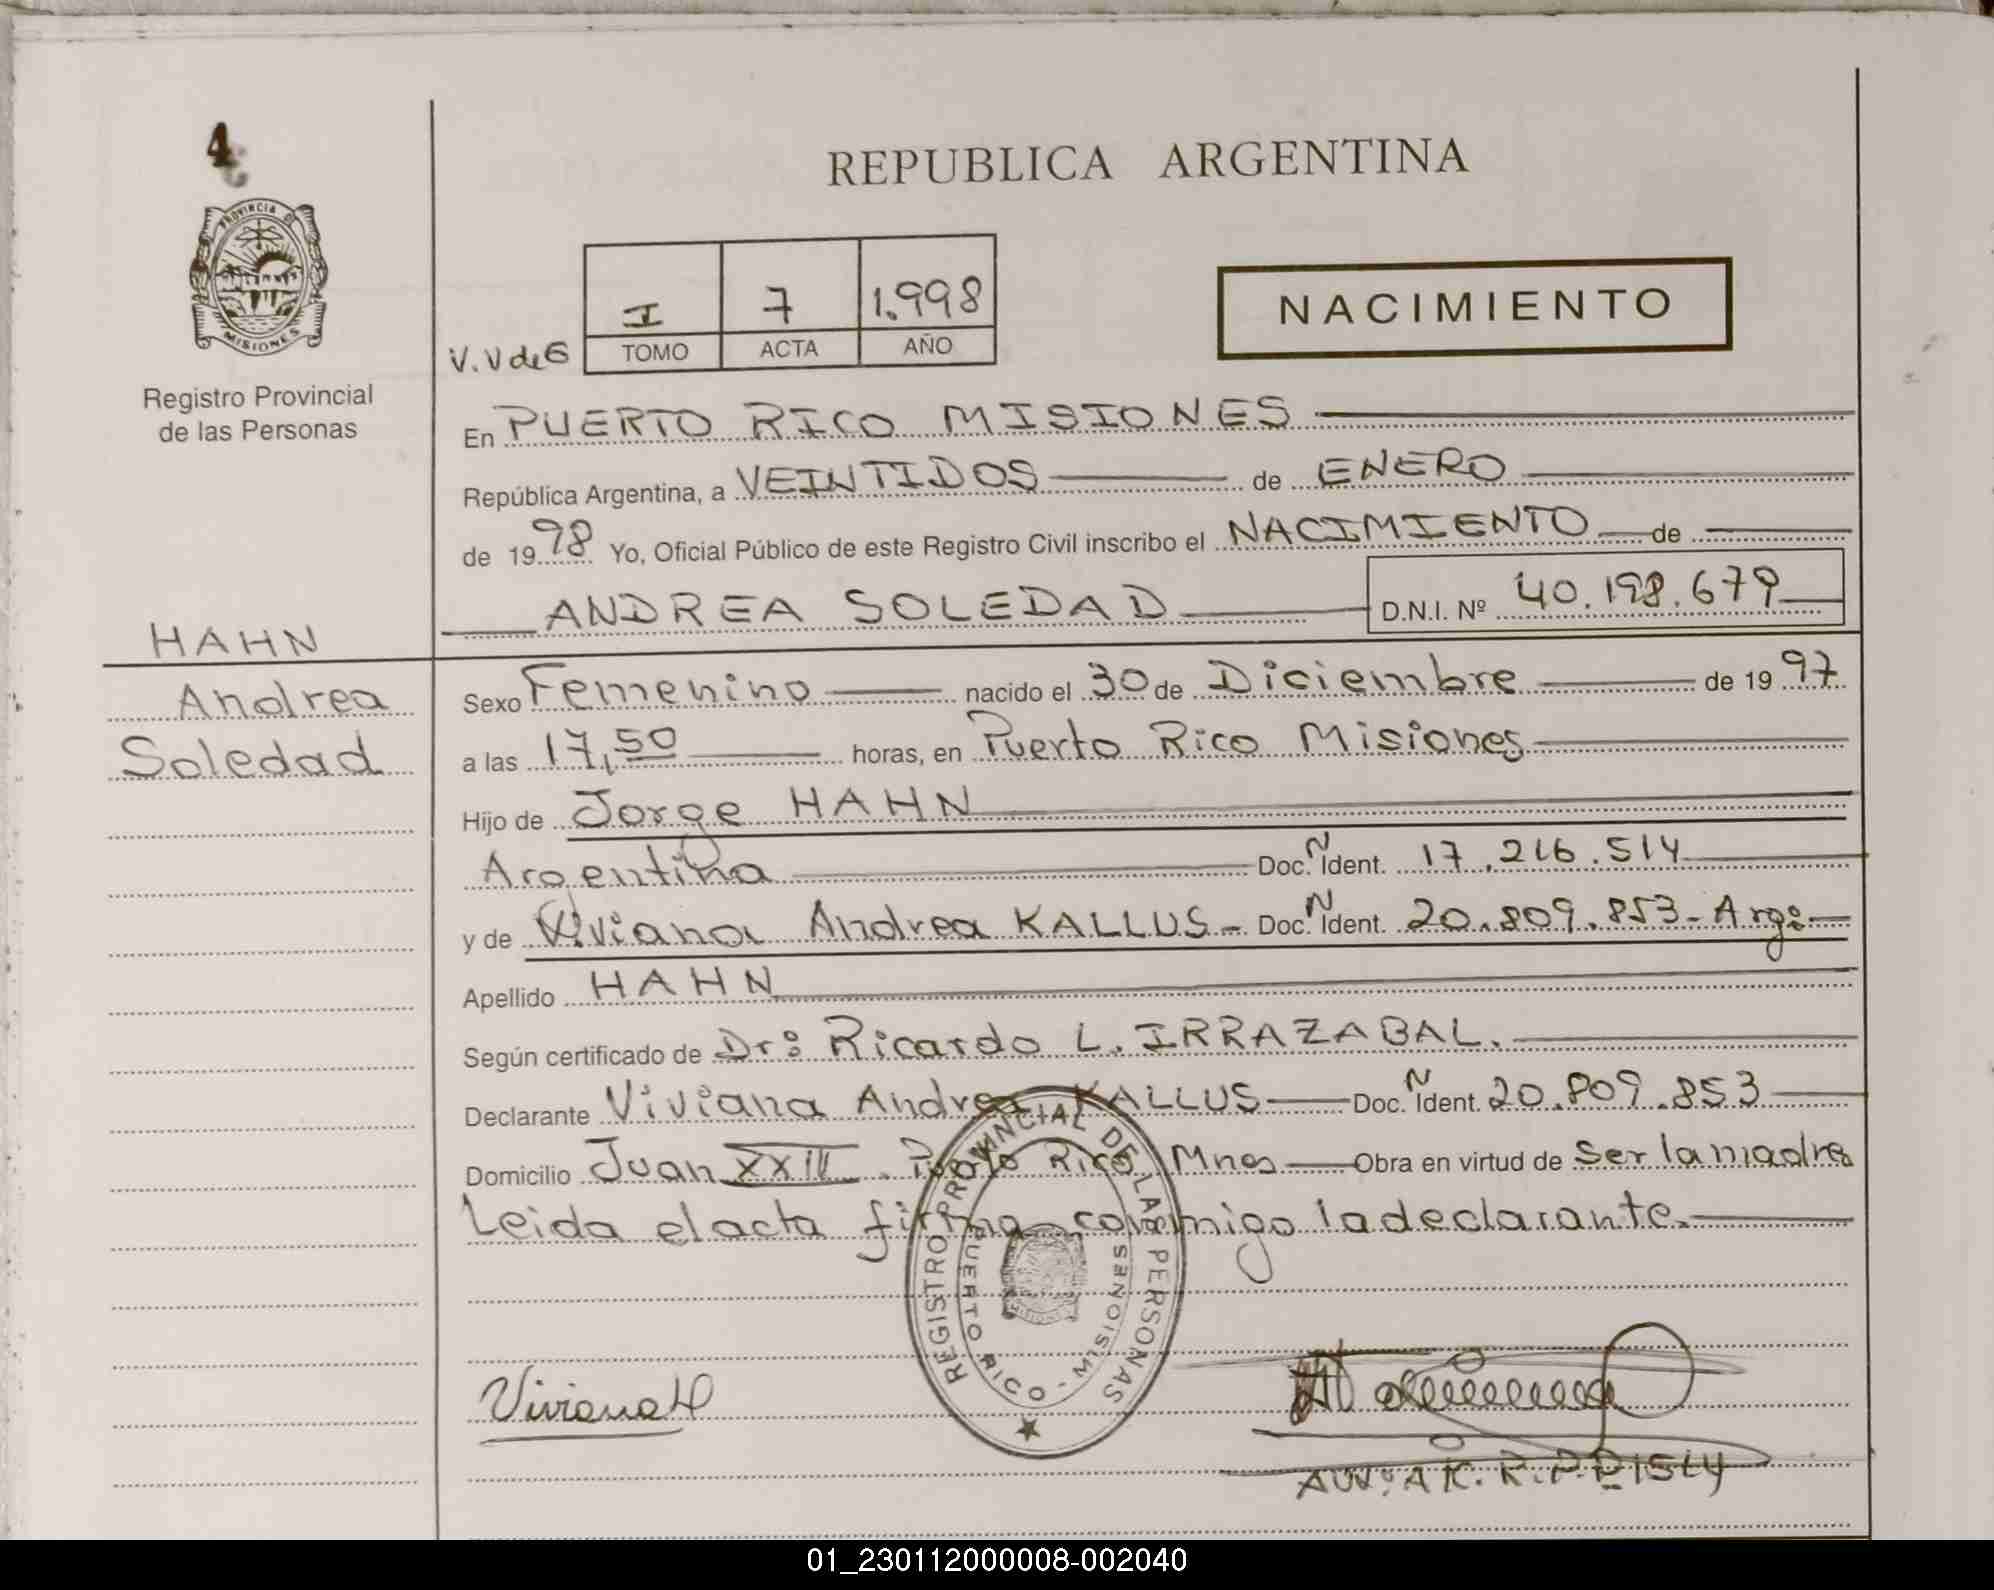 4
PROVINCIA DE
MISIONES
Registro Provincial
de las Personas
HAHN
Andrea
Soledad
REPUBLICA ARGENTINA
I 7 1.998
V.V de G TOMO ACTA AÑO
NACIMIENTO
En PUERTO RICO MISIONES
República Argentina, a VEINTIDOS de ENERO
de 19 98 Yo, Oficial Público de este Registro Civil inscribo el NACIMIENTO de
ANDREA SOLEDAD D.N.I. Nº 40.198.679
Sexo Femenino nacido el 30 de Diciembre de 19 97
a las 17,50 horas, en Puerto Rico Misiones
Hijo de Jorge HAHN
Argentina Doc. N Ident. 17.216.514
y de Viviana Andrea KALLUS - Doc. N Ident. 20.809.853 - Arg:
Apellido HAHN
Según certificado de Dr: Ricardo L. IRRAZABAL.
Declarante Viviana Andrea KALLUS Doc. N Ident. 20.809.853
Domicilio Juan XXIII. Puerto Rico Mnes Obra en virtud de Ser la madre
Leida el acta firma conmigo la declarante.
REGISTRO PROVINCIAL DE LAS PERSONAS
PUERTO RICO - MISIONES
Viviana H
01_230112000008-002040